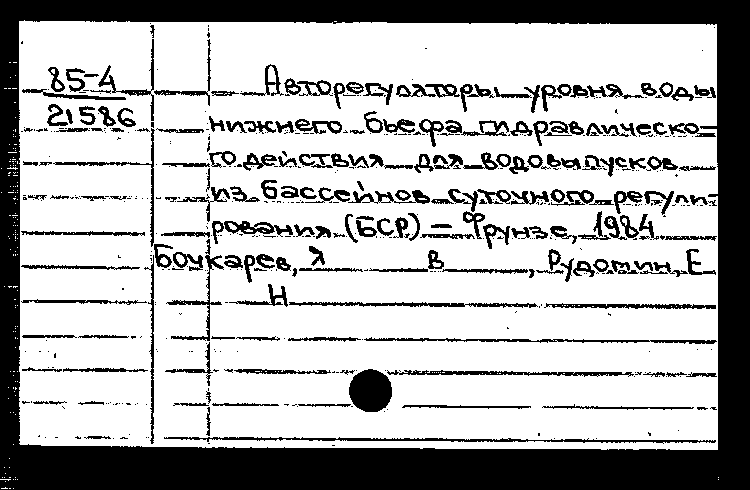 85-4
21586
Авторегуляторы уровня воды
нижнего бьефа гидравлическо-
го действия для водовыпусков
из бассейнов суточного регули-
рования (БСР) – Фрунзе, 1984
Бочкарев, Я В , Рудотин, Е
Н